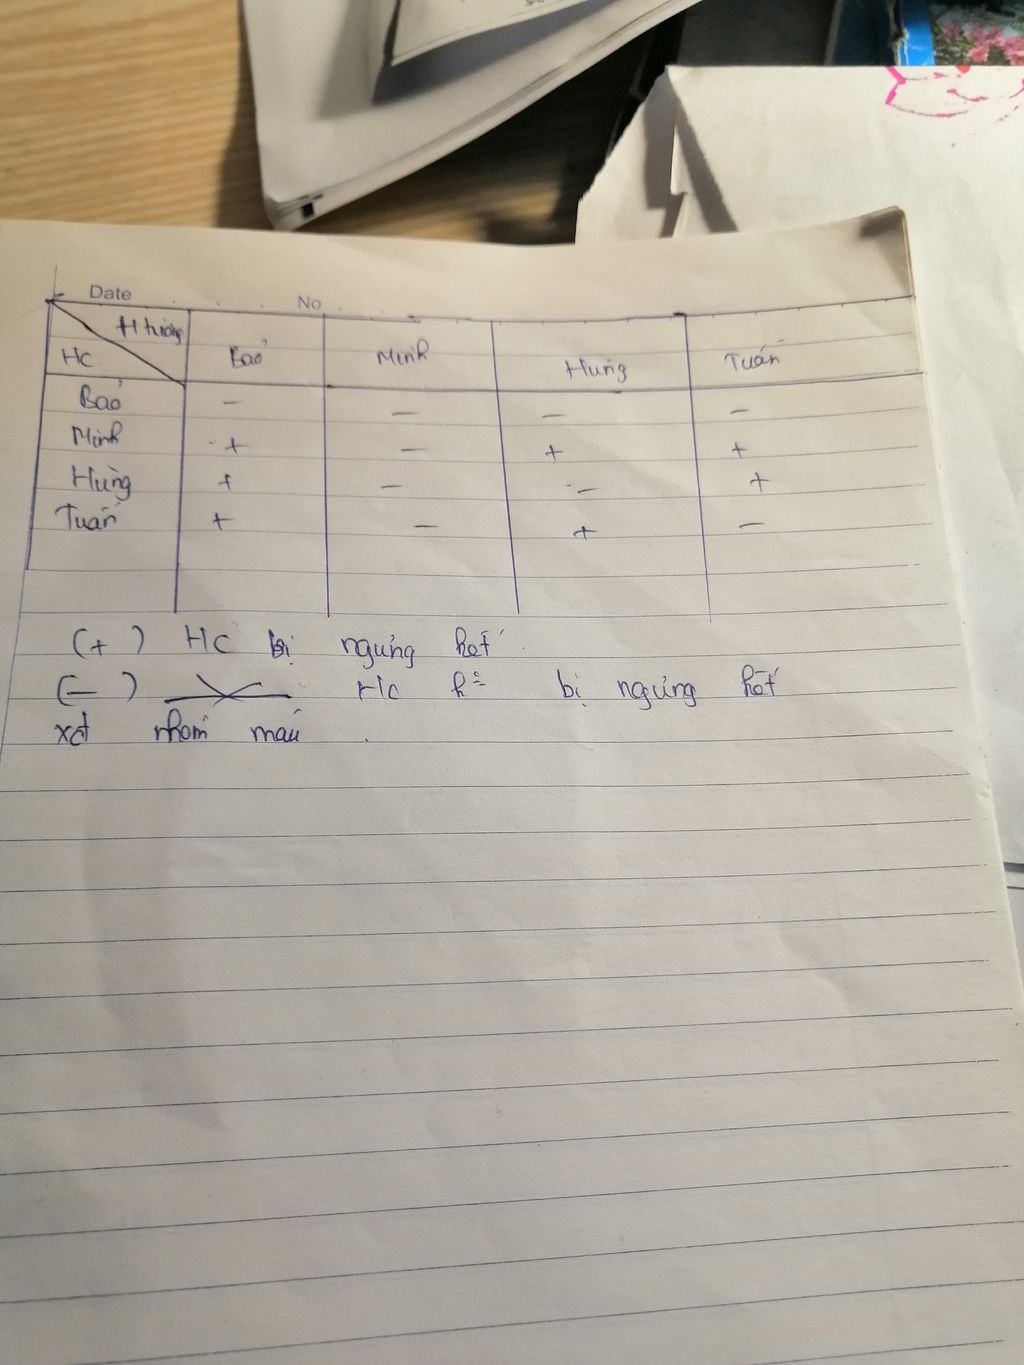 Date No
Hương
HC Bảo Minh Hùng Tuấn
Bảo − − − −
Minh + − + +
Hùng + − − +
Tuấn + − + −
(+) HC bị ngưng kết
(−) HC k⁼ bị ngưng kết
xđ nhóm máu